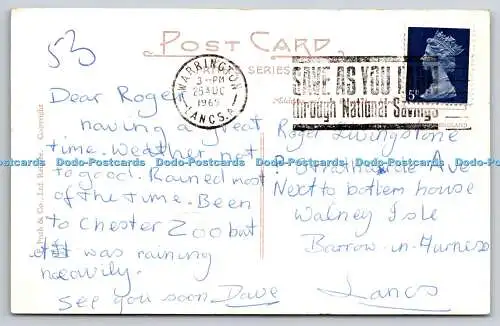 53
POST CARD
WARRINGTON
3-PM
25 AUG
1969
LANCS.
SAVE AS YOU
through National Savings
5D
Dear Roger
having a great
time. Weather not
to good. Rained most
of the time. Been
to Chester Zoo but
it was raining
heavily.
See you soon Dave
Roger Livingstone
Ave
Next to bottom house
Walney Isle
Barrow-in-Furness
Lancs
Dodo-Postcards Dodo-Postcards Dodo-Postcards Dodo-Postcards Dodo-Postcards Dodo-Postcards